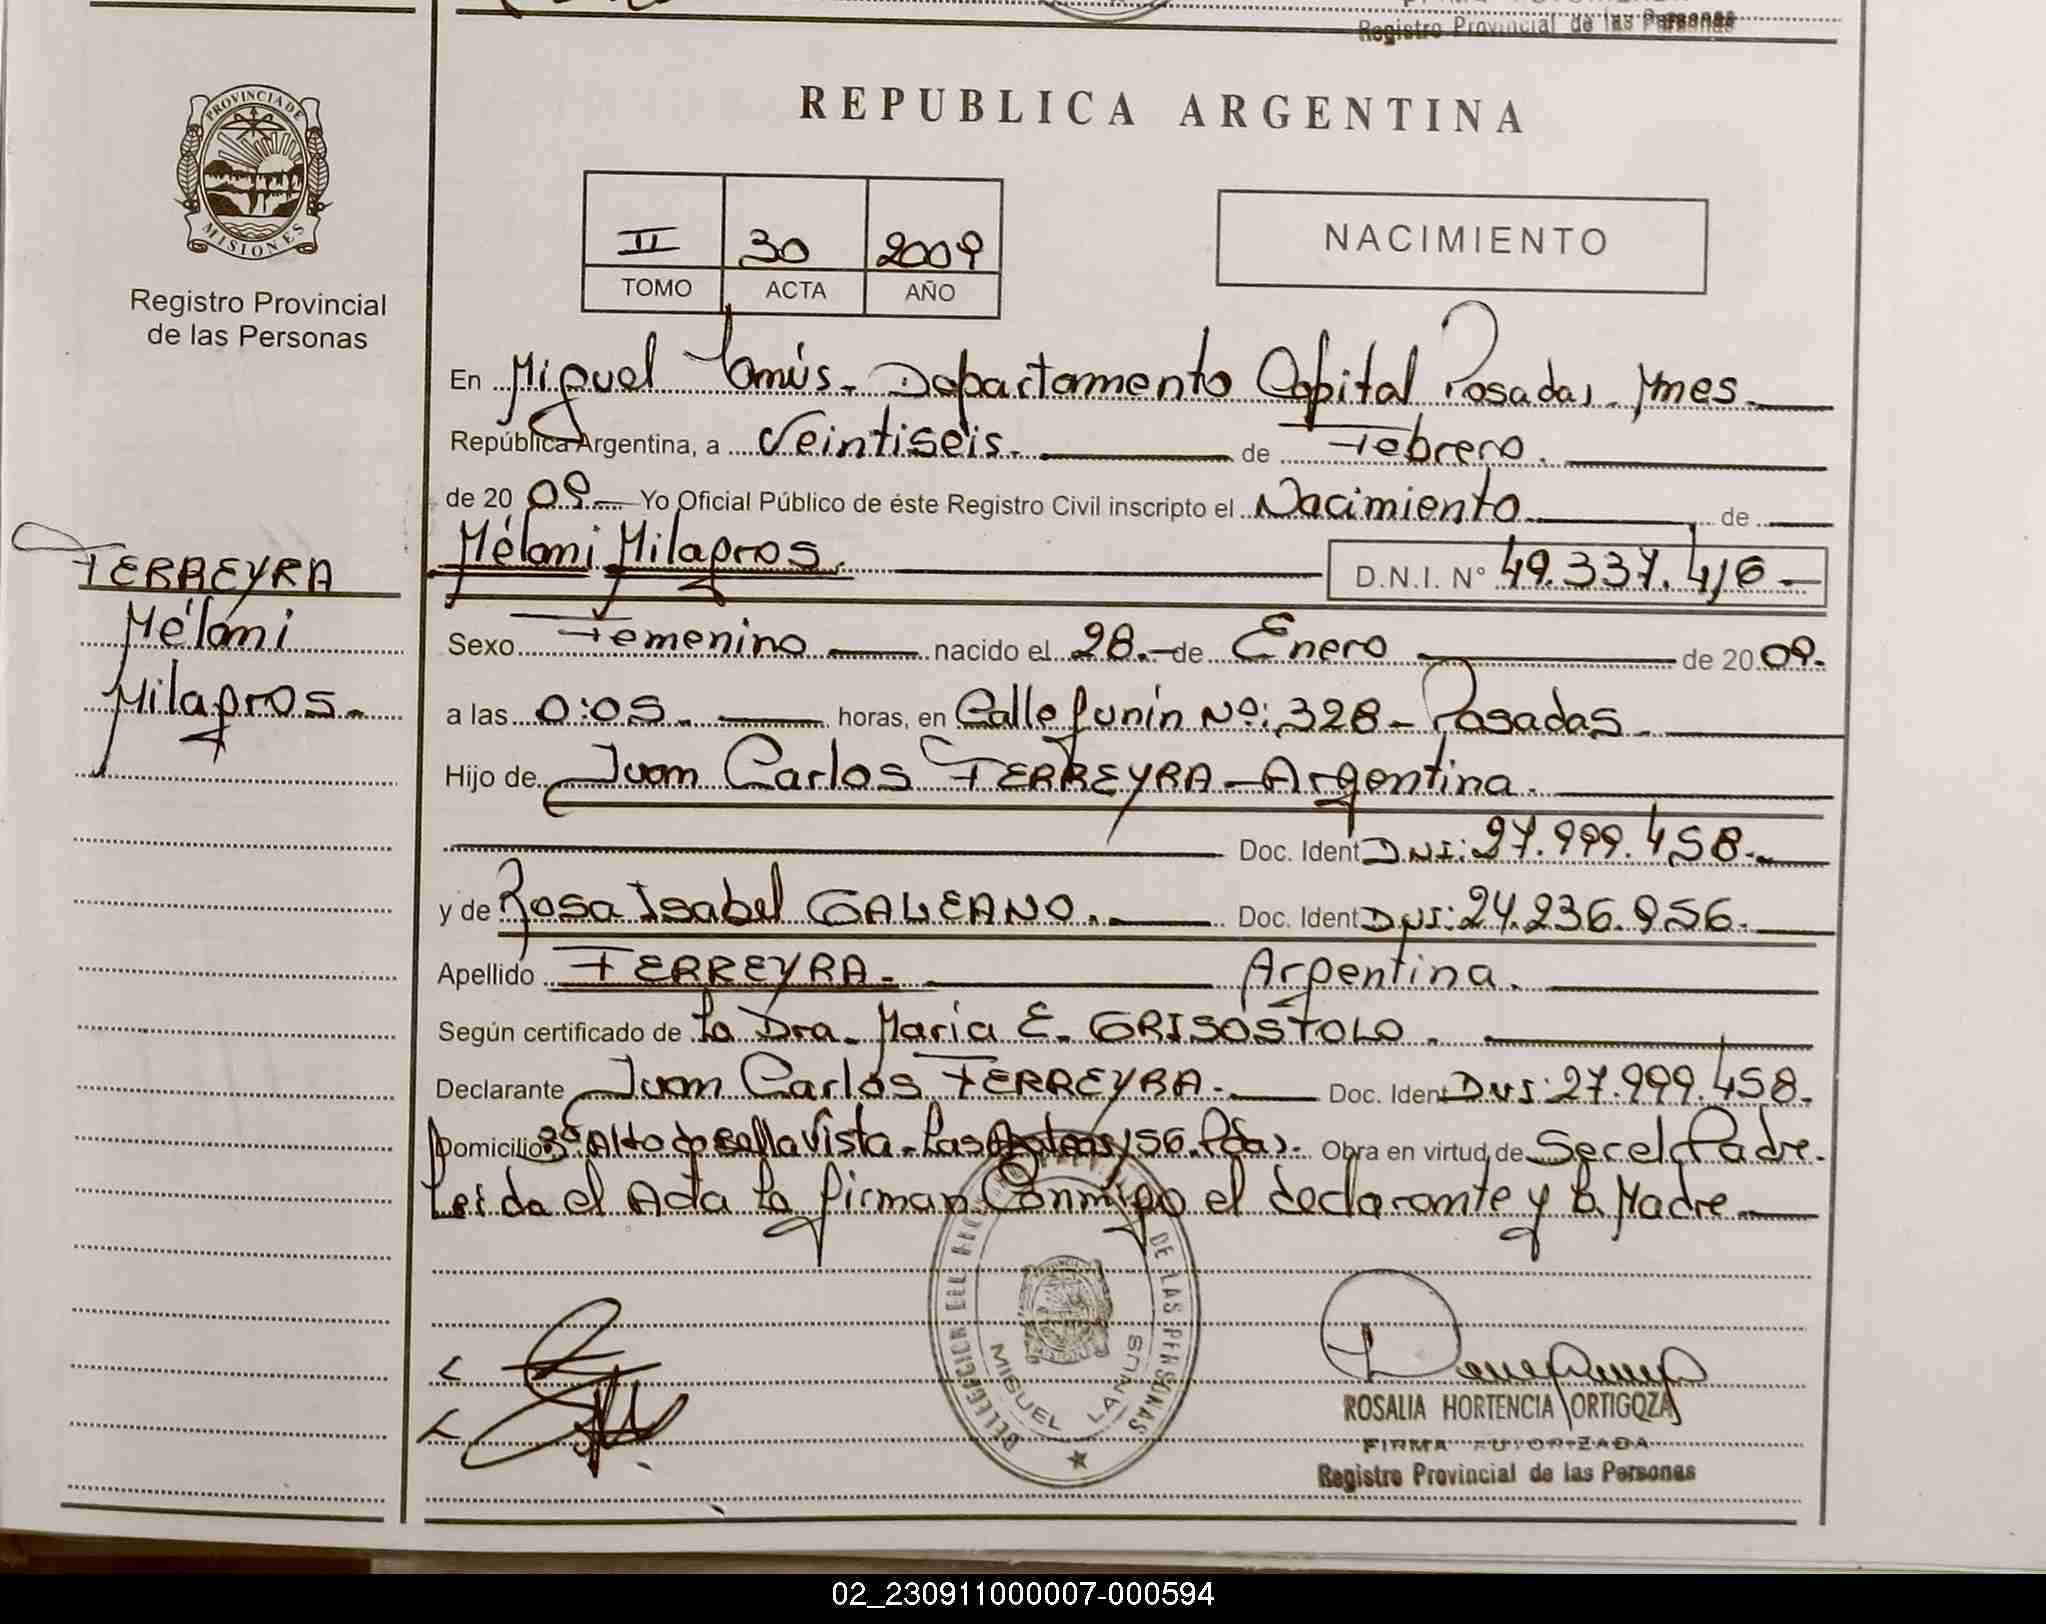 Registro Provincial de las Personas
PROVINCIA DE
MISIONES
Registro Provincial
de las Personas
REPUBLICA ARGENTINA
II 30 2009
TOMO ACTA AÑO
NACIMIENTO
En Miguel Lanús - Departamento Capital Posadas - Mnes.
República Argentina, a Veintiseis. de Febrero.
de 20 09. Yo Oficial Público de éste Registro Civil inscripto el Nacimiento de
Mélani Milagros. D.N.I. N° 49.337.416
FERREYRA
Mélani
Milagros.
Sexo Femenino nacido el 28. de Enero de 20 09.
a las 0:05. horas, en Calle Junín Nº: 328 - Posadas.
Hijo de Juan Carlos FERREYRA - Argentina.
Doc. Ident DNI: 27.999.458.
y de Rosa Isabel GALEANO. Doc. Ident DNI: 24.236.956.
Apellido FERREYRA. Argentina.
Según certificado de La Dra. María E. GRISÓSTOLO.
Declarante Juan Carlos FERREYRA. Doc. Ident DNI: 27.999.458.
Domicilio Bº Alto de Bella Vista - Las 156. Pdas. Obra en virtud de Ser el Padre.
Leida el Acta La firman Conmigo el declarante y la Madre
DELEGACION DEL REGISTRO DE LAS PERSONAS
MIGUEL LANUS
ROSALIA HORTENCIA ORTIGOZA
FIRMA AUTORIZADA
Registro Provincial de las Personas
02_230911000007-000594